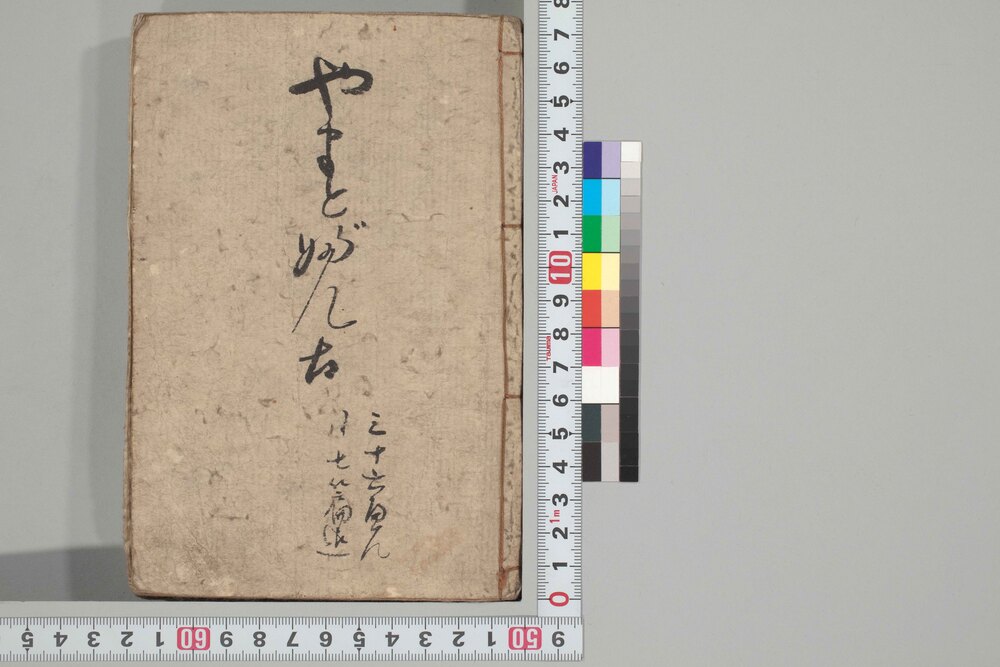 やまと婦゛ん古
三十六
8
7
6
5
4
3
2
1
10
9
8
7
6
5
4
3
2
1
0
JAPAN
Tajima
1m
5 4 3 2 1 60 9 8 7 6 5 4 3 2 1 50 9